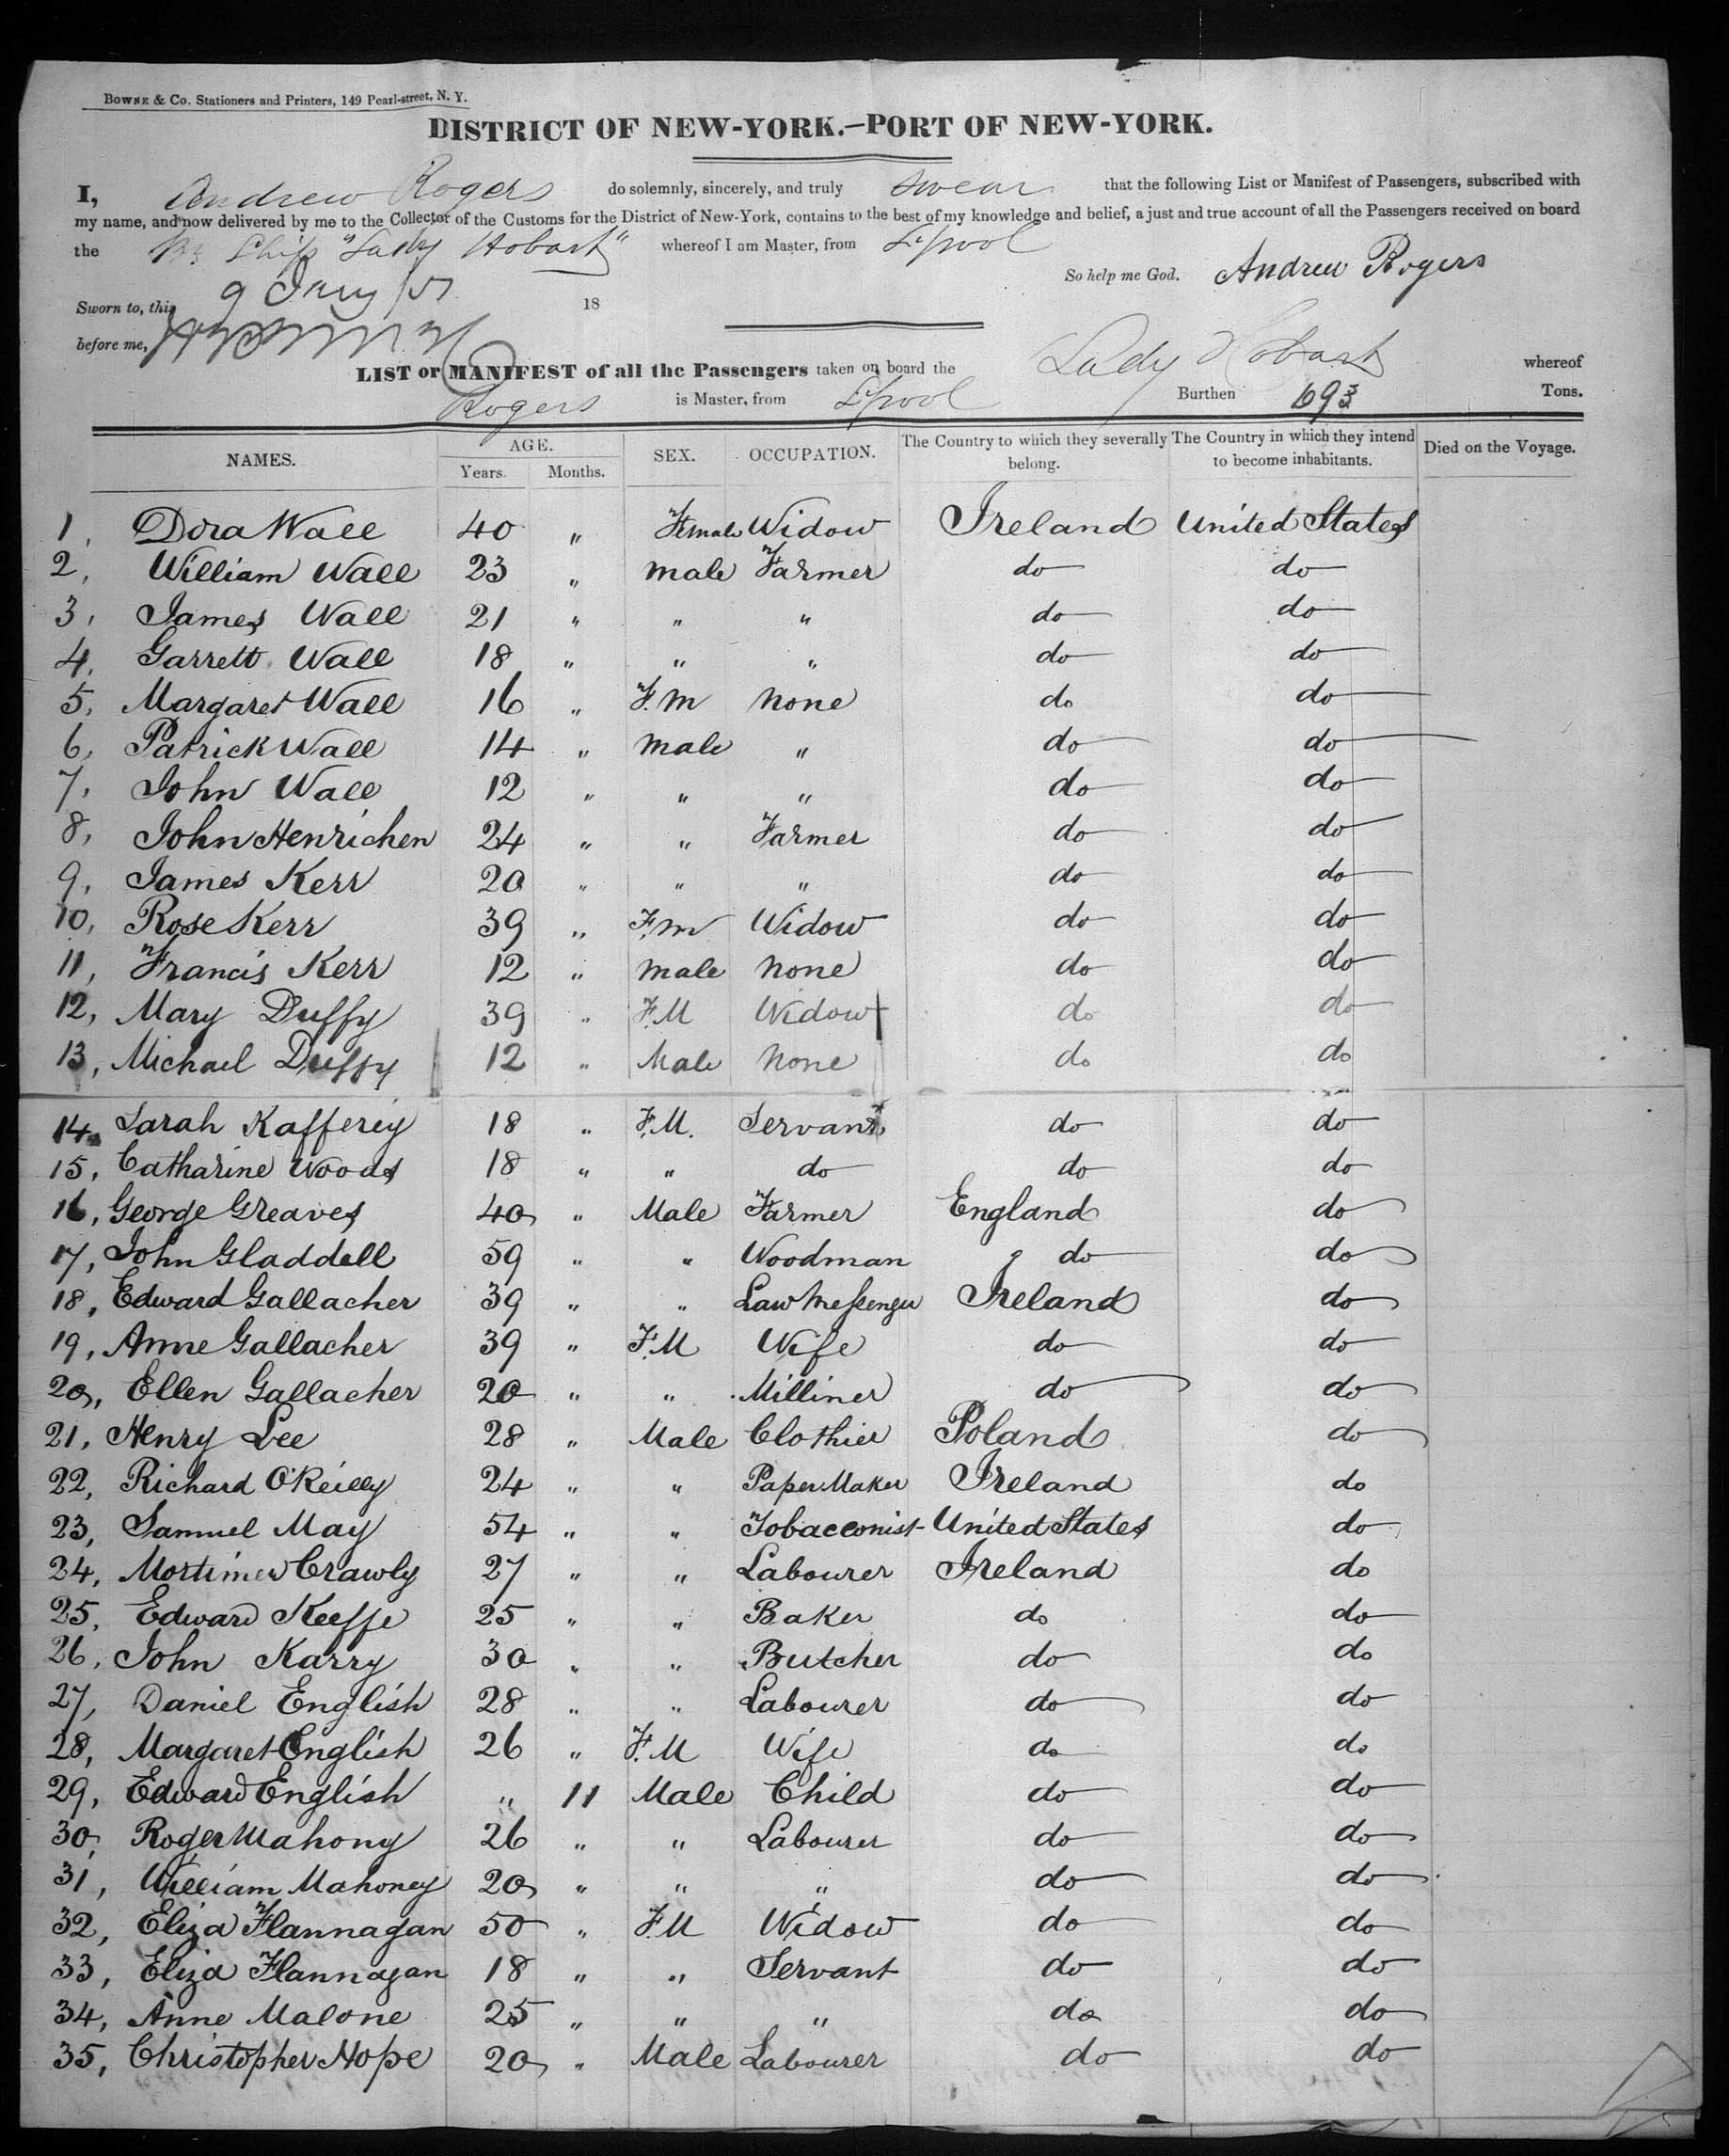 BOWNE & Co. Stationers and Printers, 149 Pearl-street, N. Y.
DISTRICT OF NEW-YORK.—PORT OF NEW-YORK.
I, Andrew Rogers do solemnly, sincerely, and truly swear that the following List or Manifest of Passengers, subscribed with
my name, and now delivered by me to the Collector of the Customs for the District of New-York, contains to the best of my knowledge and belief, a just and true account of all the Passengers received on board
the Br Ship "Lady Hobart" whereof I am Master, from L'pool
So help me God. Andrew Rogers
Sworn to, this 9 Jany /51 18
before me,
LIST or MANIFEST of all the Passengers taken on board the Lady Hobart whereof
Rogers is Master, from L'pool Burthen 693 Tons.
NAMES. AGE. Years. Months. SEX. OCCUPATION. The Country to which they severally belong. The Country in which they intend to become inhabitants. Died on the Voyage.
1, Dora Wall 40 " Female Widow Ireland United States
2, William Wall 23 " male Farmer do do
3, James Wall 21 " " " do do
4, Garrett Wall 18 " " " do do
5, Margaret Wall 16 " F.M None do do
6, Patrick Wall 14 " male " do do
7, John Wall 12 " " " do do
8, John Henrichen 24 " " Farmer do do
9, James Kerr 20 " " " do do
10, Rose Kerr 39 " F.M Widow do do
11, Francis Kerr 12 " male None do do
12, Mary Duffy 39 " F.M Widow do do
13, Michael Duffy 12 " Male None do do
14, Sarah Kafferty 18 " F.M. Servant do do
15, Catharine Woods 18 " " do do do
16, George Greaves 40 " Male Farmer England do
17, John Gladdell 59 " " Woodman do do
18, Edward Gallacher 39 " " Law Messenger Ireland do
19, Anne Gallacher 39 " F.M Wife do do
20, Ellen Gallacher 20 " " Milliner do do
21, Henry Lee 28 " Male Clothier Poland do
22, Richard O'Reilly 24 " " Paper Maker Ireland do
23, Samuel May 54 " " Tobacconist United States do
24, Mortimer Crawly 27 " " Labourer Ireland do
25, Edward Keeffe 25 " " Baker do do
26, John Karry 30 " " Butcher do do
27, Daniel English 28 " " Labourer do do
28, Margaret English 26 " F.M Wife do do
29, Edward English " 11 Male Child do do
30, Roger Mahony 26 " " Labourer do do
31, William Mahoney 20 " " " do do
32, Eliza Flannagan 50 " F.M Widow do do
33, Eliza Flannagan 18 " " Servant do do
34, Anne Malone 25 " " " do do
35, Christopher Hope 20 " Male Labourer do do